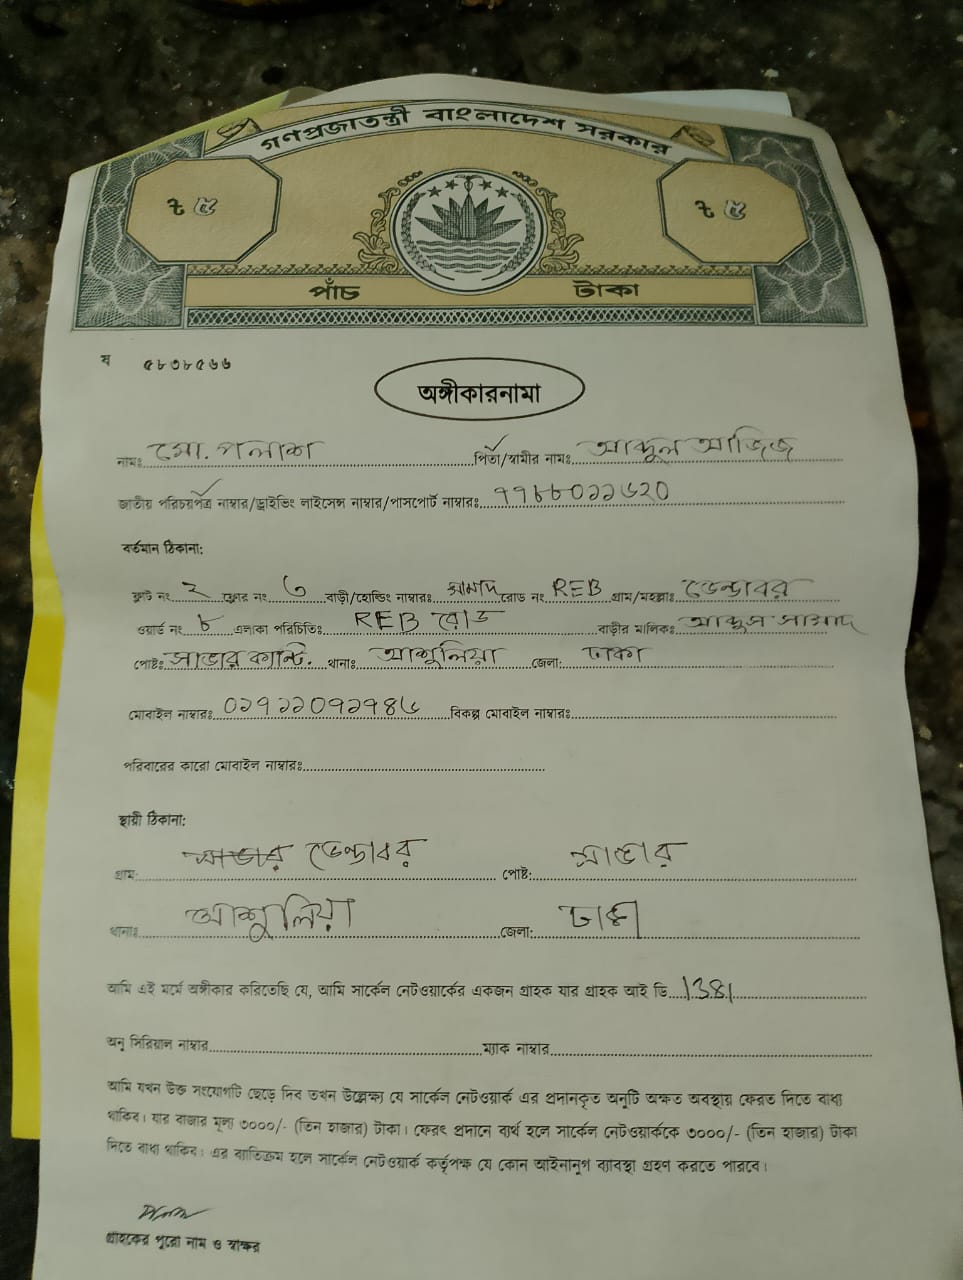 গণপ্রজাতন্ত্রী বাংলাদেশ সরকার
৳ ৫ ৳ ৫
পাঁচ টাকা
ষ ৫৮৩৮৫৬৬
অঙ্গীকারনামা
নামঃ মো. পলাশ পিতা/স্বামীর নামঃ আব্দুল আজিজ
জাতীয় পরিচয়পত্র নাম্বার/ড্রাইভিং লাইসেন্স নাম্বার/পাসপোর্ট নাম্বারঃ ৭৭৮৮০১১৬২০
বর্তমান ঠিকানা:
ফ্লাট নং ২ ফ্লোর নং ৩ বাড়ী/হোল্ডিং নাম্বারঃ রোড নং REB গ্রাম/মহল্লাঃ ভেন্ডাবর
ওয়ার্ড নং ৮ এলাকা পরিচিতিঃ REB রোড বাড়ীর মালিকঃ আব্দুস সামাদ
পোষ্টঃ সাভার ক্যান্ট. থানাঃ আশুলিয়া জেলা: ঢাকা
মোবাইল নাম্বারঃ ০১৭১১০৭১৭৪৬ বিকল্প মোবাইল নাম্বারঃ
পরিবারের কারো মোবাইল নাম্বারঃ
স্থায়ী ঠিকানা:
গ্রাম: সাভার ভেন্ডাবর পোষ্ট: সাভার
থানাঃ আশুলিয়া জেলা: ঢাকা
আমি এই মর্মে অঙ্গীকার করিতেছি যে, আমি সার্কেল নেটওয়ার্কের একজন গ্রাহক যার গ্রাহক আই ডি 1381
অনু সিরিয়াল নাম্বার ম্যাক নাম্বার
আমি যখন উক্ত সংযোগটি ছেড়ে দিব তখন উল্লেক্ষ্য যে সার্কেল নেটওয়ার্ক এর প্রদানকৃত অনুটি অক্ষত অবস্থায় ফেরত দিতে বাধ্য
থাকিব। যার বাজার মূল্য ৩০০০/- (তিন হাজার) টাকা। ফেরৎ প্রদানে ব্যর্থ হলে সার্কেল নেটওয়ার্ককে ৩০০০/- (তিন হাজার) টাকা
দিতে বাধ্য থাকিব। এর ব্যতিক্রম হলে সার্কেল নেটওয়ার্ক কর্তৃপক্ষ যে কোন আইনানুগ ব্যাবস্থা গ্রহণ করতে পারবে।
গ্রাহকের পুরো নাম ও স্বাক্ষর